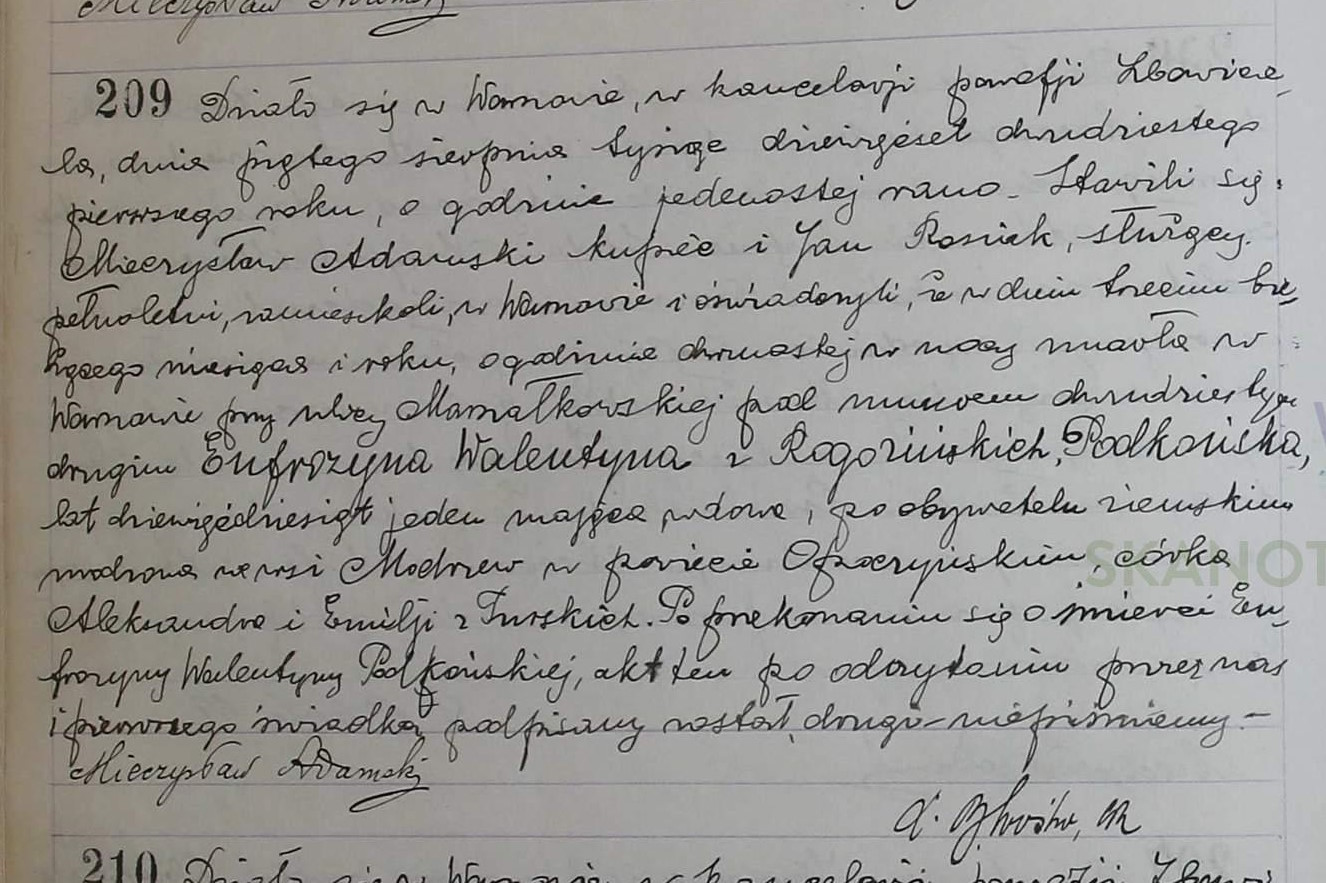 Mieczysław Adamski
209 Działo się w Warszawie, w kancelarji parafji Zbawicie-
la, dnia piątego sierpnia tysiąc dziewięćset dwudziestego
pierwszego roku, o godzinie jedenastej rano. Stawili się:
Mieczysław Adamski kupiec i Jan Rosiak, służący.
pełnoletni, zamieszkali, w Warszawie i oświadczyli, że w dniu trzecim bie-
żącego miesiąca i roku, o godzinie dwunastej w nocy zmarła w
Warszawie przy ulicy Marszałkowskiej pod numerem dwudziestym
drugim Eufrozyna Walentyna z Rogozińskich, Podkońska,
lat dziewięćdziesiąt jeden mająca, wdowa, po obywatelu ziemskim
urodzona we wsi Modrzew w powiecie Opoczyńskim, córka
Aleksandra i Emilji z Turskich. Po przekonaniu się o śmierci Eu-
frozyny Walentyny Podkońskiej, akt ten po odczytaniu przez nas
i pierwszego świadka podpisany został, drugi - niepiśmienny -
Mieczysław Adamski
X.
210 Działo się w Warszawie, w kancelarji parafji Zbawi
SKANOT